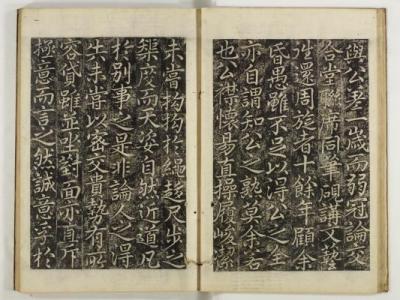 與公差一歲而弱冠論交
合堂聯席同筆硯講文藝
還周旋者十餘年顧余
昏愚雖不足以得公之全
亦自謂知公之熟莫余若
也公襟懷易直操履峻潔
未嘗拘拘於繩趨尺步之
榘而天姿自然近道凡
於別事之是非論人之得
失未嘗以密交貴勢有所
容貸雖並坐對面亦直斥
極意而言之然誠意孚於